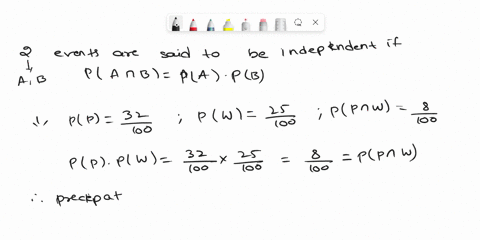 2 events are said to be independent if
↓
A, B P(A∩B) = P(A) . P(B)
P(P) = 32/100 ; P(W) = 25/100 ; P(P∩W) = 8/100
P(P) . P(W) = 32/100 × 25/100 = 8/100 = P(P∩W)
∴ precipat